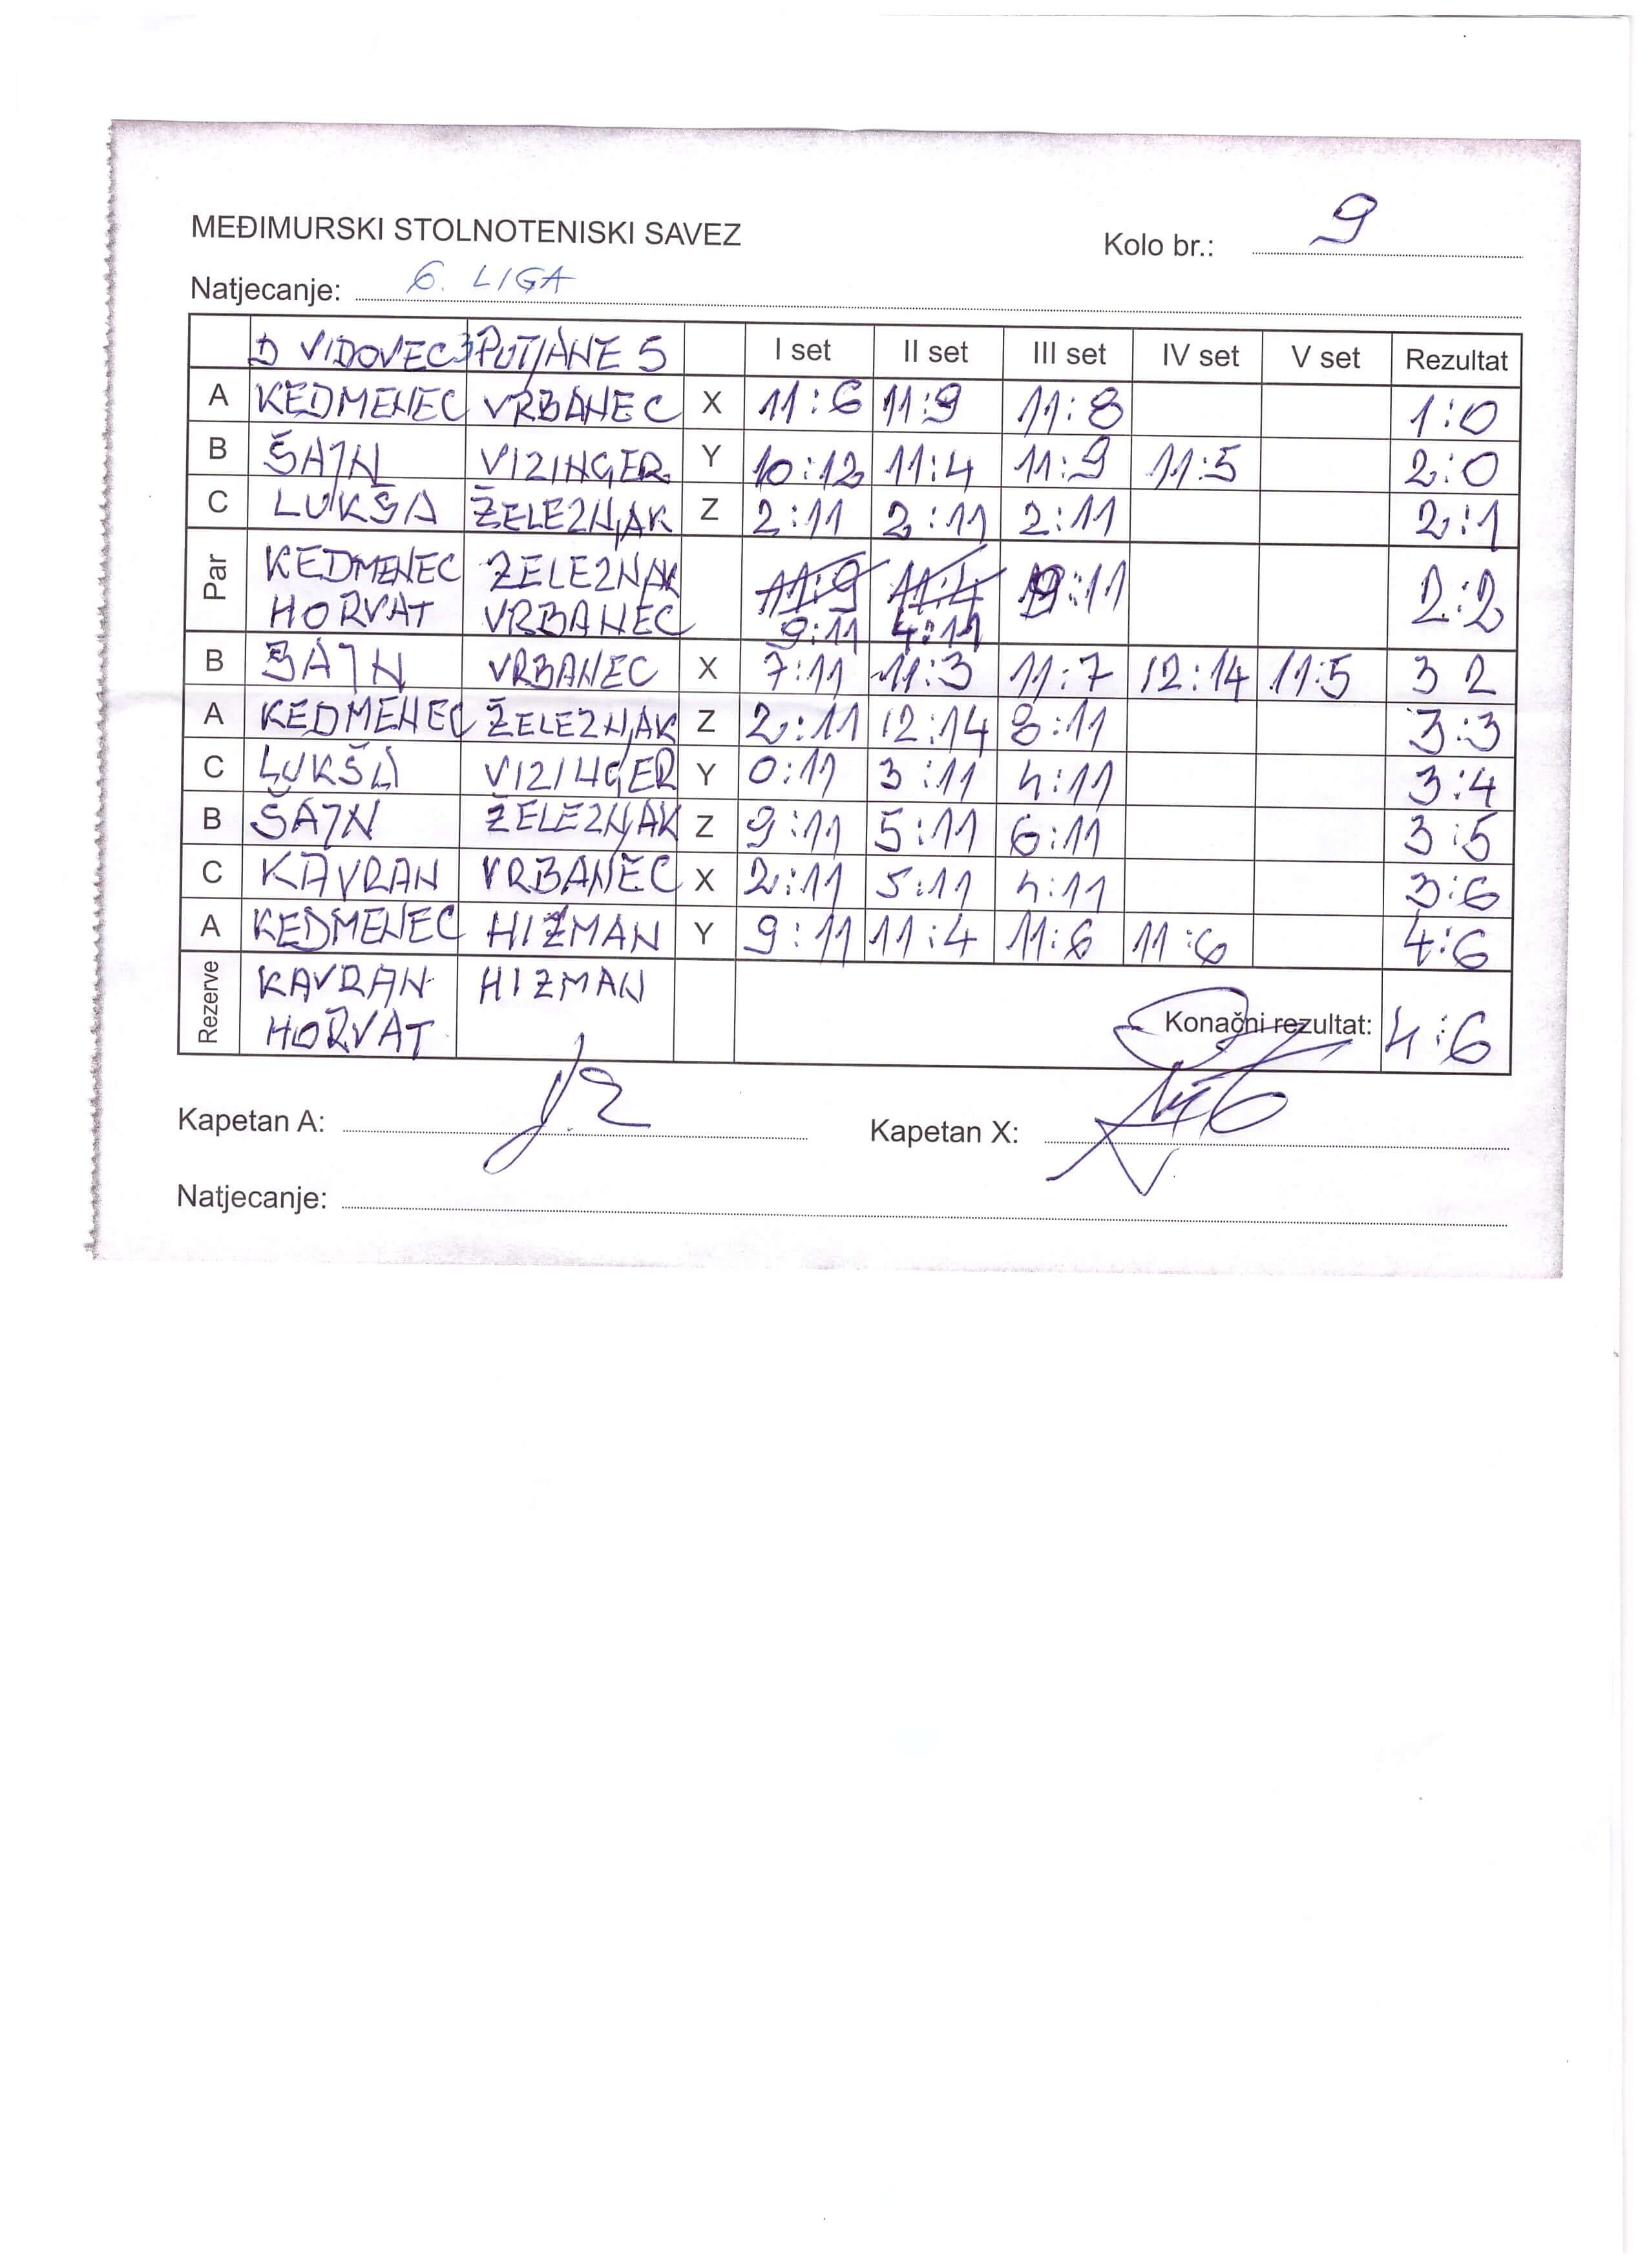 MEĐIMURSKI STOLNOTENISKI SAVEZ
Kolo br.: 9
Natjecanje: 6. LIGA
D VIDOVEC 3 PUTJANE 5 I set II set III set IV set V set Rezultat
A KEDMENEC VRBANEC X 11:6 11:9 11:8 1:0
B ŠAJN VIZINGER Y 10:12 11:4 11:9 11:5 2:0
C LUKŠA ŽELEZNJAK Z 2:11 2:11 2:11 2:1
Par KEDMENEC ŽELEZNJAK 11:9 11:4 9:11 2:2
HORVAT VRBANEC 9:11 4:11
B ŠAJN VRBANEC X 7:11 11:3 11:7 12:14 11:5 3 2
A KEDMENEC ŽELEZNJAK Z 2:11 12:14 8:11 3:3
C LUKŠA VIZINGER Y 0:11 3:11 4:11 3:4
B ŠAJN ŽELEZNJAK Z 9:11 5:11 6:11 3:5
C KAVRAN VRBANEC X 2:11 5:11 4:11 3:6
A KEDMENEC HIŽMAN Y 9:11 11:4 11:6 11:6 4:6
Rezerve KAVRAN HIŽMAN
HORVAT Konačni rezultat: 4:6
Kapetan A: Kapetan X:
Natjecanje: